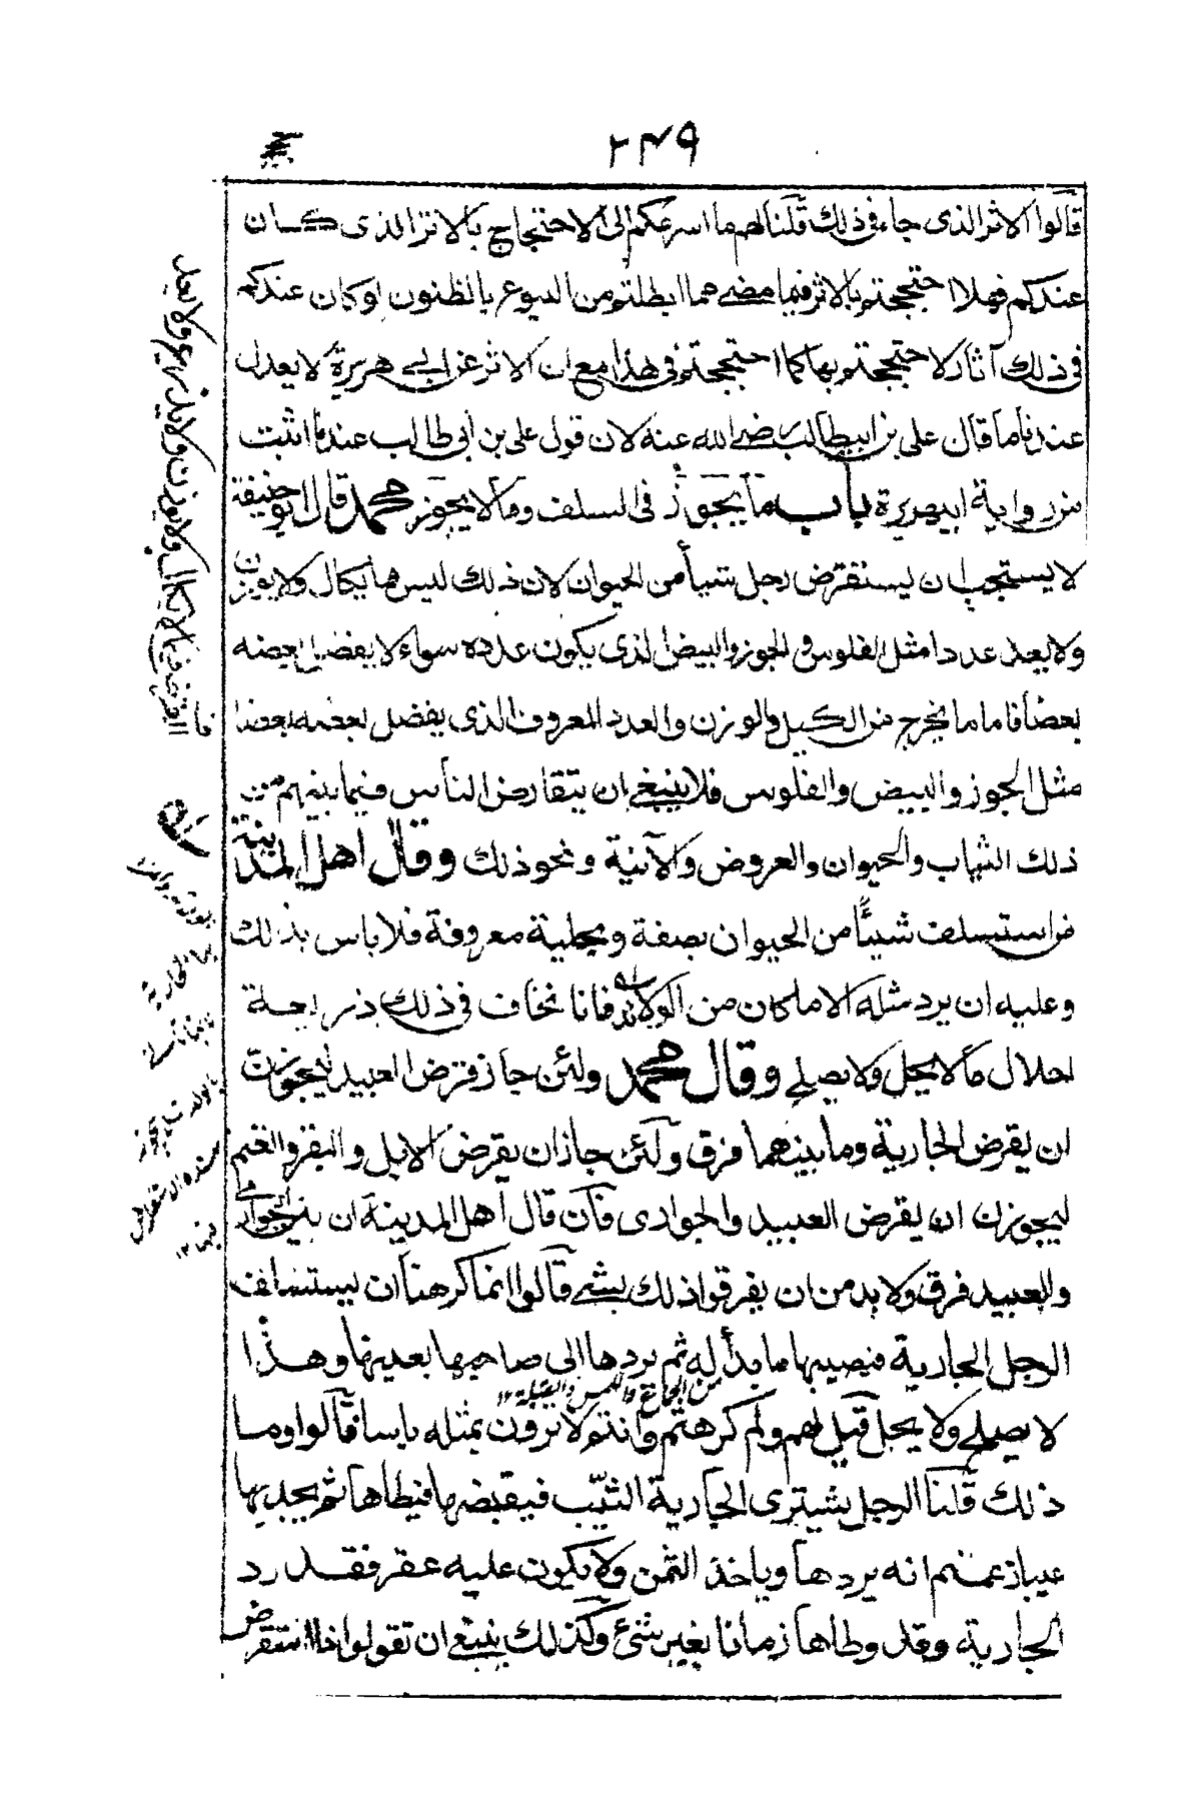 ٢٤٩
قالوا الاثر الذى جاء فى ذلك قلنا لهم ما اسرعكم الى الاحتجاج بالاثر الذى كان
عندكم فهلا احتججتم بالاثر فيما مضى مما ابطلتم من البيوع بالظنون لو كان عندكم
فى ذلك آثار لا حتججتم بها كما احتججتم فى هذا مع ان الاثر عن ابى هريرة لا يعدل
عندنا ما قال على بن ابيطالب رضى الله عنه لان قول على بن أبى طالب عندنا اثبت
من رواية ابيهريرة باب ما يجوز فى السلف وما لا يجوز محمد قال ابو حنيفة
لا يستحب ان يستقرض رجل شيأ من الحيوان لان ذلك ليس مما يكال ولا يوزن
ولا يعد عددا مثل الفلوس و الجوز والبيض الذى يكون عدده سواء لا يفضل بعضه
بعضا فاما ما يخرج من الكيل والوزن والعدد المعروف الذى يفضل بعضه بعضا
مثل الجوز والبيض والفلوس فلا ينبغى ان يتقارض الناس فيما بينهم من
ذلك الثياب والحيوان والعروض والآنية ونحو ذلك وقال اهل المدينة
من استسلف شيئا من الحيوان بصفة وبحلية معروفة فلا باس بذلك
وعليه ان يرد مثله الا ما كان من الولائد فانا نخاف فى ذلك ذريعة
احلال ما لا يحل ولا يصلح وقال محمد ولئن جاز قرض العبيد ليجوزن
ان يقرض الجارية وما بينهما فرق ولئن جاز ان يقرض الابل والبقر والغنم
ليجوزن ان يقرض العبيد والجوارى فان قال اهل المدينة ان بين الجوارى
والعبيد فرق ولا بد من ان يفرقوا ذلك بشئ قالوا انما كرهنا ان يستسلف
الرجل الجارية فيصيبها ما بدأ له ثم يردها الى صاحبها بعينها وهذا
من الجماع واللمس والقبلة ١٢
لا يصلح ولا يحل قيل لهم ولم كرهتم وانتم لا ترون بمثله باسا قالوا وما
ذلك قلنا الرجل يشترى الجارية الثيب فيقبضها فيطاها ثم يجد بها
عيبا زعمتم انه يردها وياخذ الثمن ولا يكون عليه عقر فقد رد
الجارية وقد وطاها زمانا بغير شئ وكذلك ينبغى ان تقولوا اذا استقرض